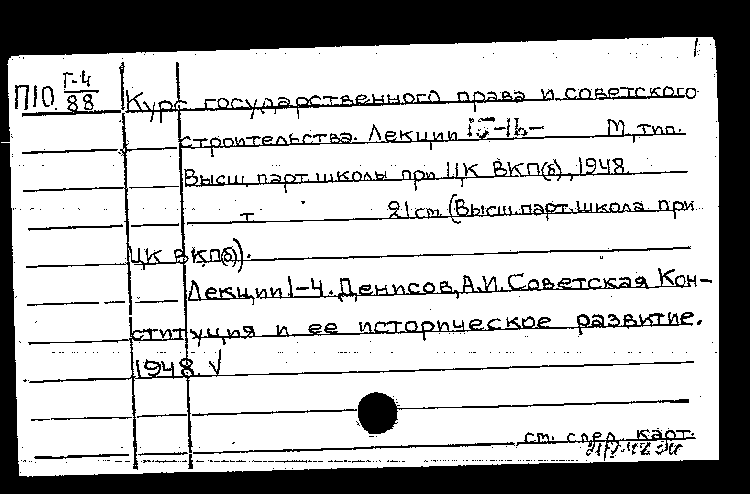 П10 Г-4/88 Курс государственного права и советского
строительства. Лекции М, тип.
Высш. парт. школы при ЦК ВКП(б), 1948.
т 21 см. (Высш. парт. школа при
ЦК ВКП(б)).
Лекции 1-4. Денисов, А.И. Советская Кон-
ституция и ее историческое развитие.
1948. √
см. след. карт.